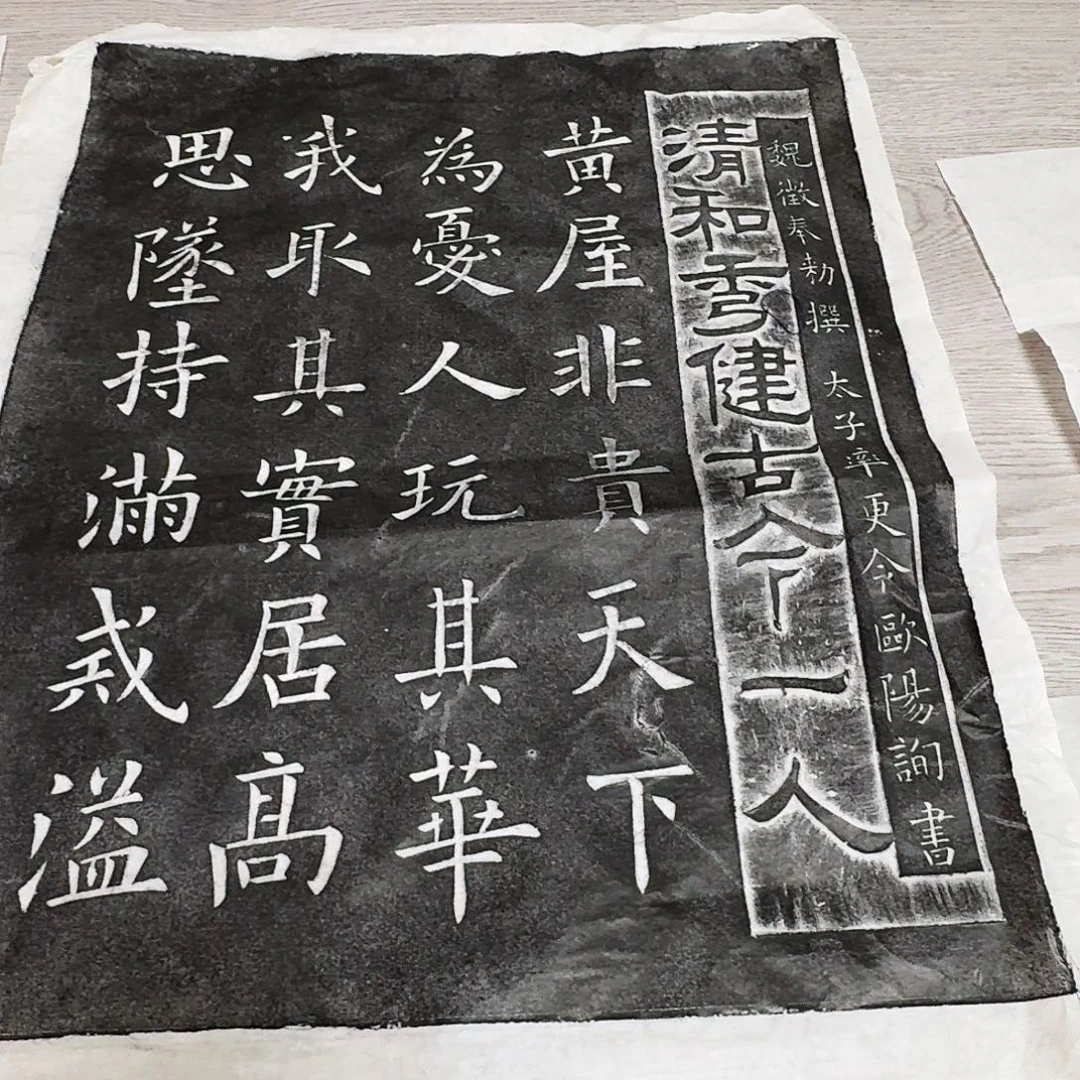 魏徵奉勅撰 太子率更令歐陽詢書
清和秀健古今一人
黄屋非貴天下
為憂人玩其華
我取其實居高
思墜持滿戒溢